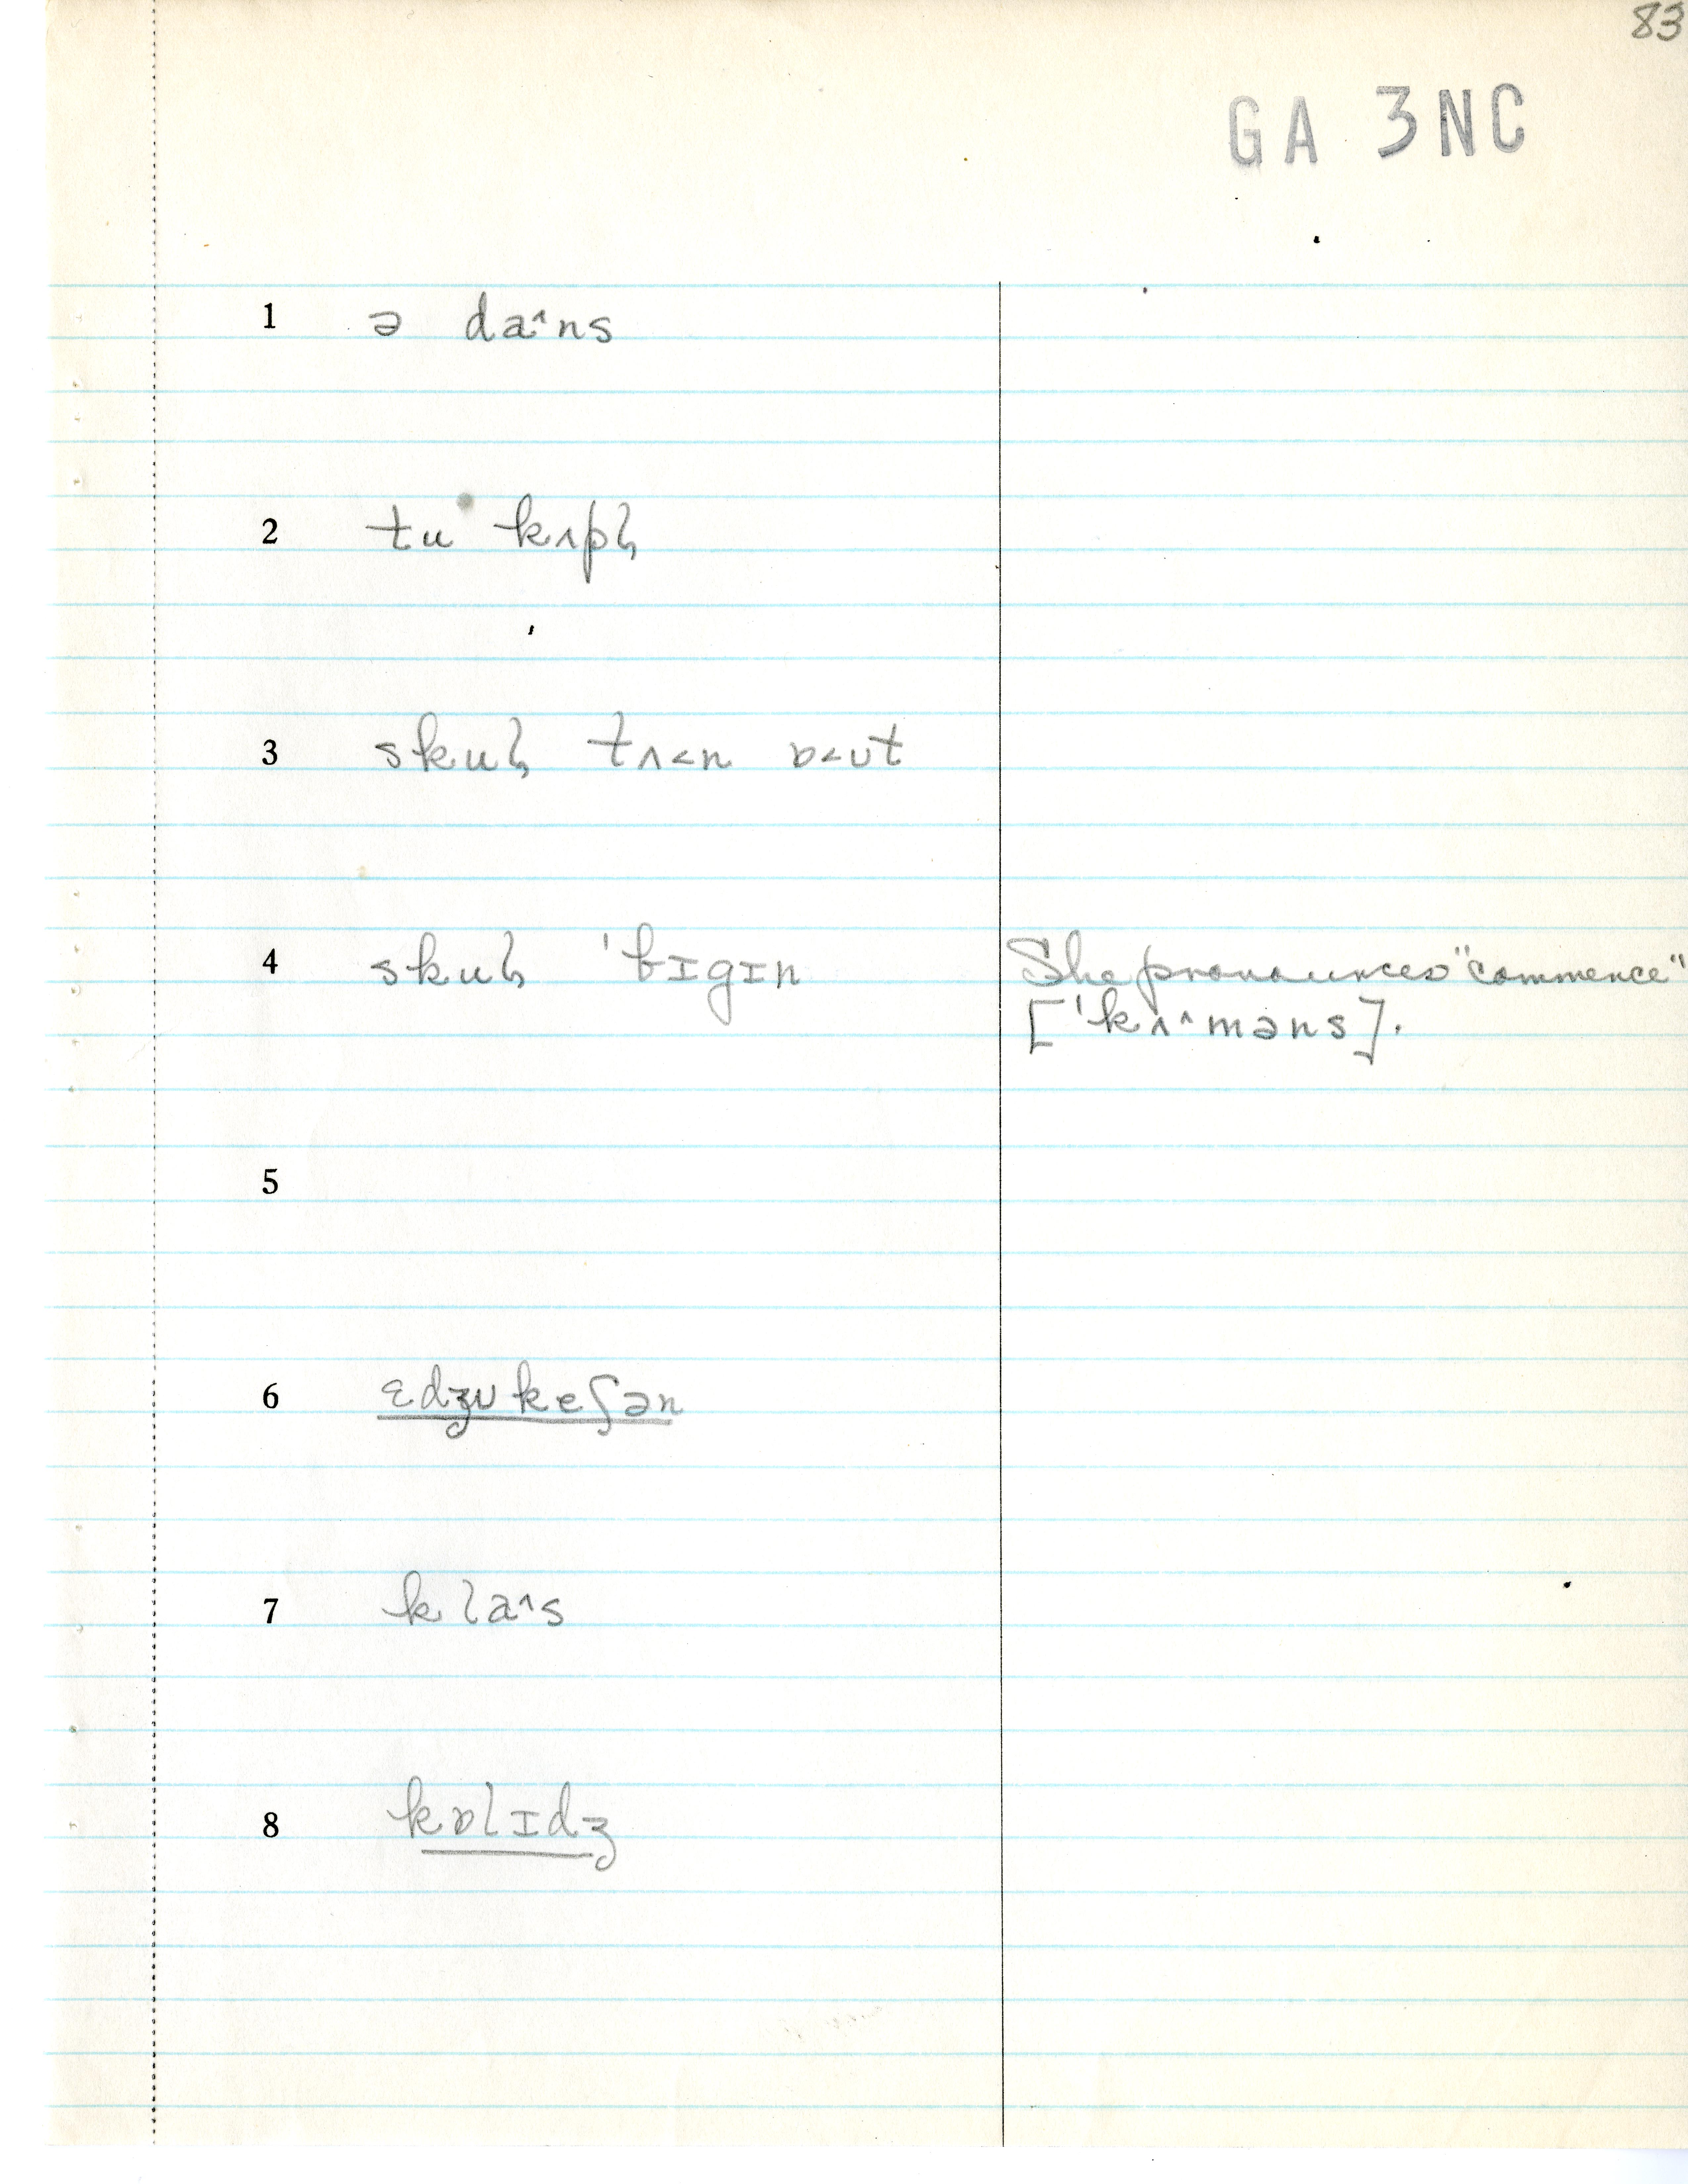 83
GA 3NC
1 ə da˄ns
2 tu kʌpɫ̩
3 skuɫ tʌ˂n ɒ˂ʊt
4 skuɫ ˈbɪgɪn
She pronounces "commence"
[ˈkʌ˄məns].
5
6 ɛdʒʊkeʃən
7 kla˄s
8 kɒlɪdʒ